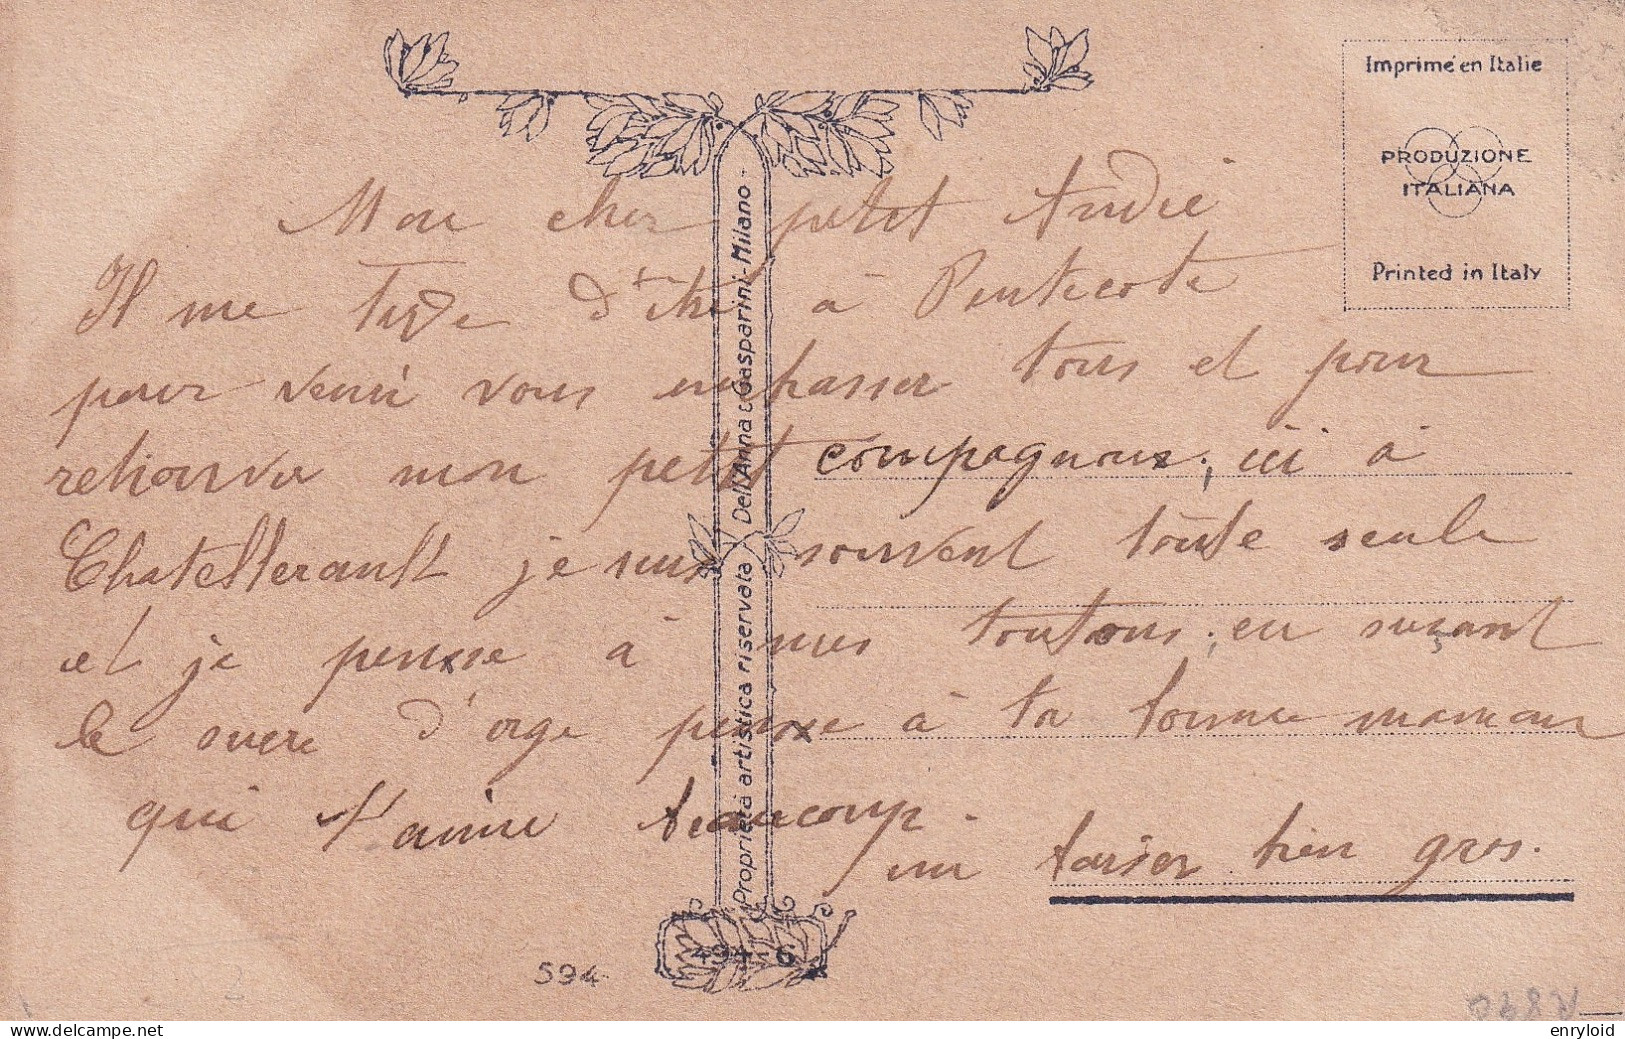 Imprimé en Italie
PRODUZIONE
ITALIANA
Printed in Italy
Mon cher petit André
Il me tarde d'être à Pentecote
pour venir vous embrasser tous et pour
retrouver mon petit compagnon, ici à
Chatellerault je suis souvent toute seule
et je pense à mes toutous, en suçant
le sucre d'orge pense à ta bonne maman
qui t'aime beaucoup.
un baiser bien gros.
Proprietà artistica riservata Dell'Anna & Gasparini - Milano -
494-6
594
enryloid